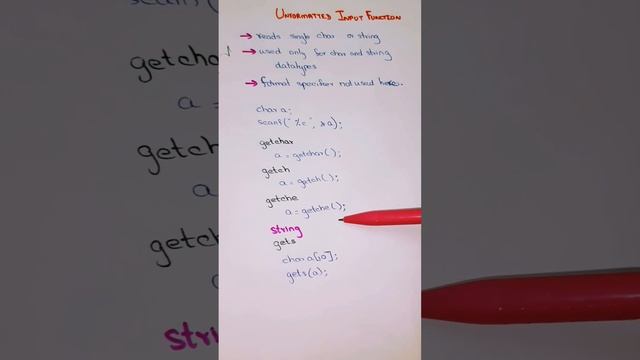 UNFORMATTED INPUT FUNCTION
→ reads single char or string
→ used only for char and string
datatypes
→ format specifier not used here.
char a;
scanf("%c", &a);
getchar
a = getchar();
getch
a = getch();
getche
a = getche();
string
gets
char a[10];
gets(a);